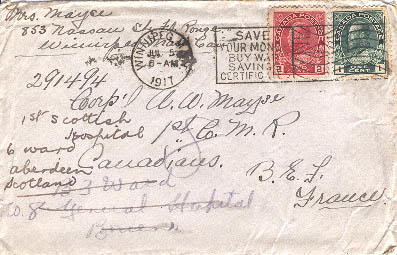 Mrs. Mayse
853 Nassau St Fort Rouge
Winnipeg Can
WINNIPEG MAN
JUL 5
6-AM
1917
SAVE
YOUR MONEY
BUY WAR
SAVINGS
CERTIFICATES
CANADA POSTAGE
2 CENTS
CANADA POSTAGE
1 CENT
291494
Corp'l A. W. Mayse
1st Scottish
Hospital
1st C. M. R.
6 ward
aberdeen
Scotland
Canadians.
B. E. F.
France.
B 3 Ward
No. 8 General Hospital